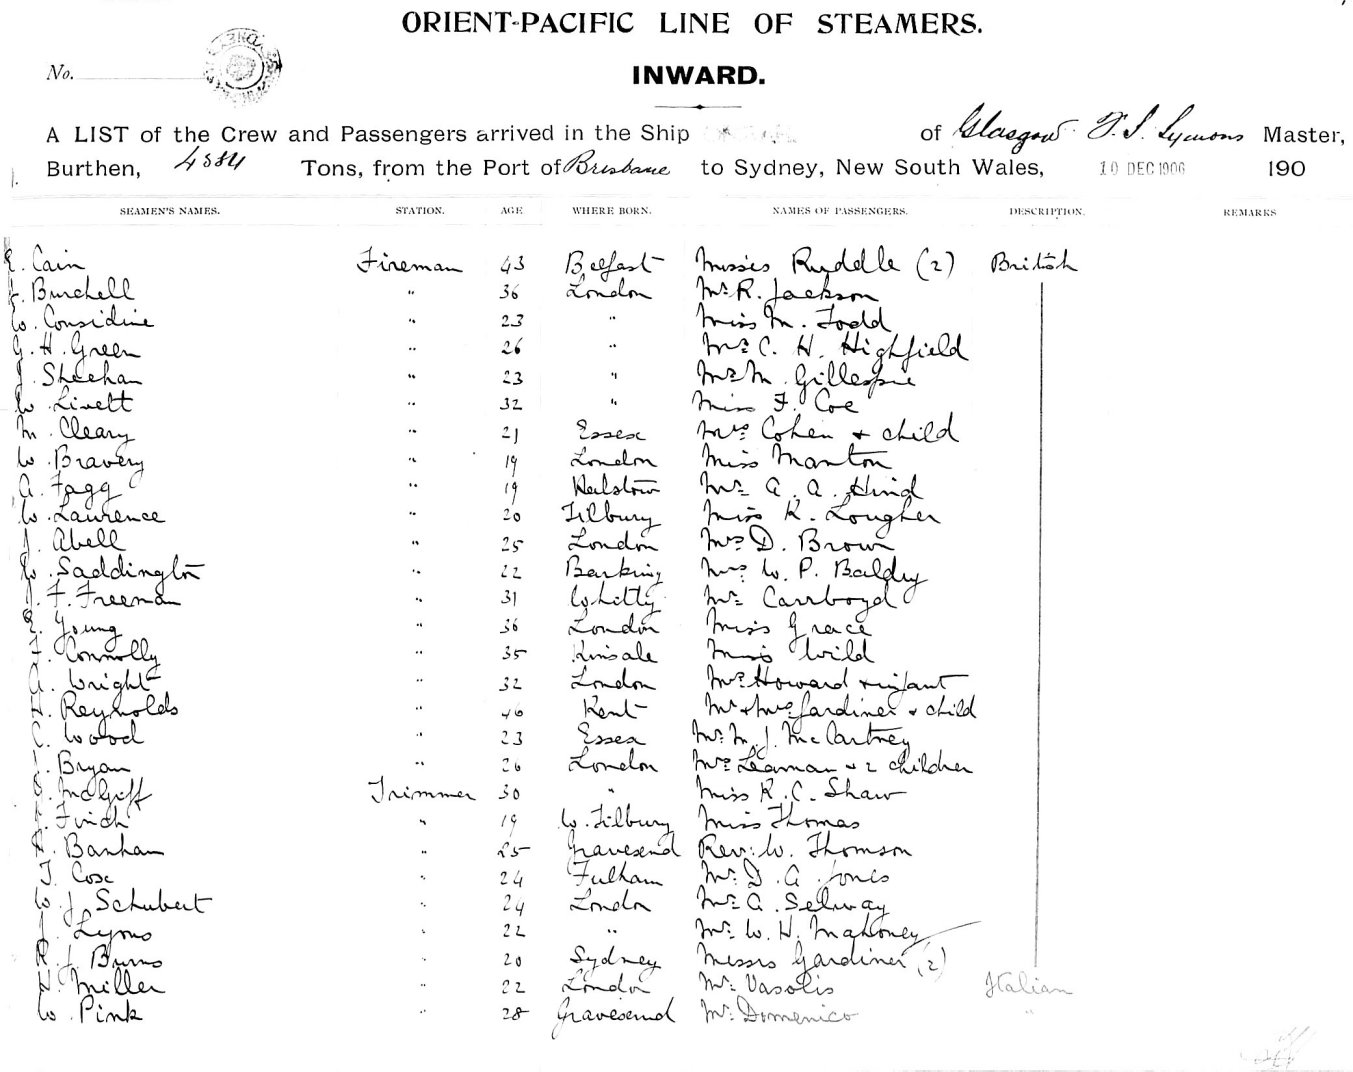 ORIENT-PACIFIC LINE OF STEAMERS.
No.
INWARD.
A LIST of the Crew and Passengers arrived in the Ship of Glasgow F. S. Symons Master,
Burthen, 4584 Tons, from the Port of Brisbane to Sydney, New South Wales, 10 DEC 1906 190
SEAMEN'S NAMES. STATION. AGE WHERE BORN. NAMES OF PASSENGERS. DESCRIPTION. REMARKS
Cain Fireman 43 Belfast Misses Ruddle (2) British
Burchell " 36 London Mr R. Jackson
W. Considine " 23 " Miss M. Todd
G. H. Green " 26 " Mr C. H. Highfield
J. Sheehan " 23 " Mr M. Gillespie
W. Livett " 32 " Miss F. Coe
M. Cleary " 21 Essex Mrs Cohen & child
W. Bravery " 19 London Miss Manton
A. Fagg " 19 Halstow Mr A. A. Hind
W. Laurence " 20 Tilbury Miss K. Lougher
J. Abell " 25 London Mrs D. Brown
W. Saddington " 22 Barking Mrs W. P. Baldry
J. F. Freeman " 31 Whitty Mr Carrboyd
E. Young " 36 London Miss Grace
Connolly " 35 Kinsale Miss Wild
A. Wright " 32 London Mrs Howard & infant
H. Reynolds " 46 Kent Mr & Mrs Gardiner & child
C. Wood " 23 Essex Mr M. J. McCartney
Bryan " 26 London Mrs Leaman & 2 children
S. McGiff Trimmer 30 " Miss R. C. Shaw
Finch " 19 W. Tilbury Miss Thomas
H. Banham " 25 Gravesend Rev: W. Thomson
T. Cox " 24 Fulham Mr D. A. Jones
W. J. Schubert " 24 London Mr A. Selway
J. Lyons " 22 " Mr W. H. Mahoney
R. J. Burns " 20 Sydney Misses Gardiner (2)
H. Miller " 22 London Mr Vasolis Italian
W. Pink " 28 Gravesend Mr Domenico "